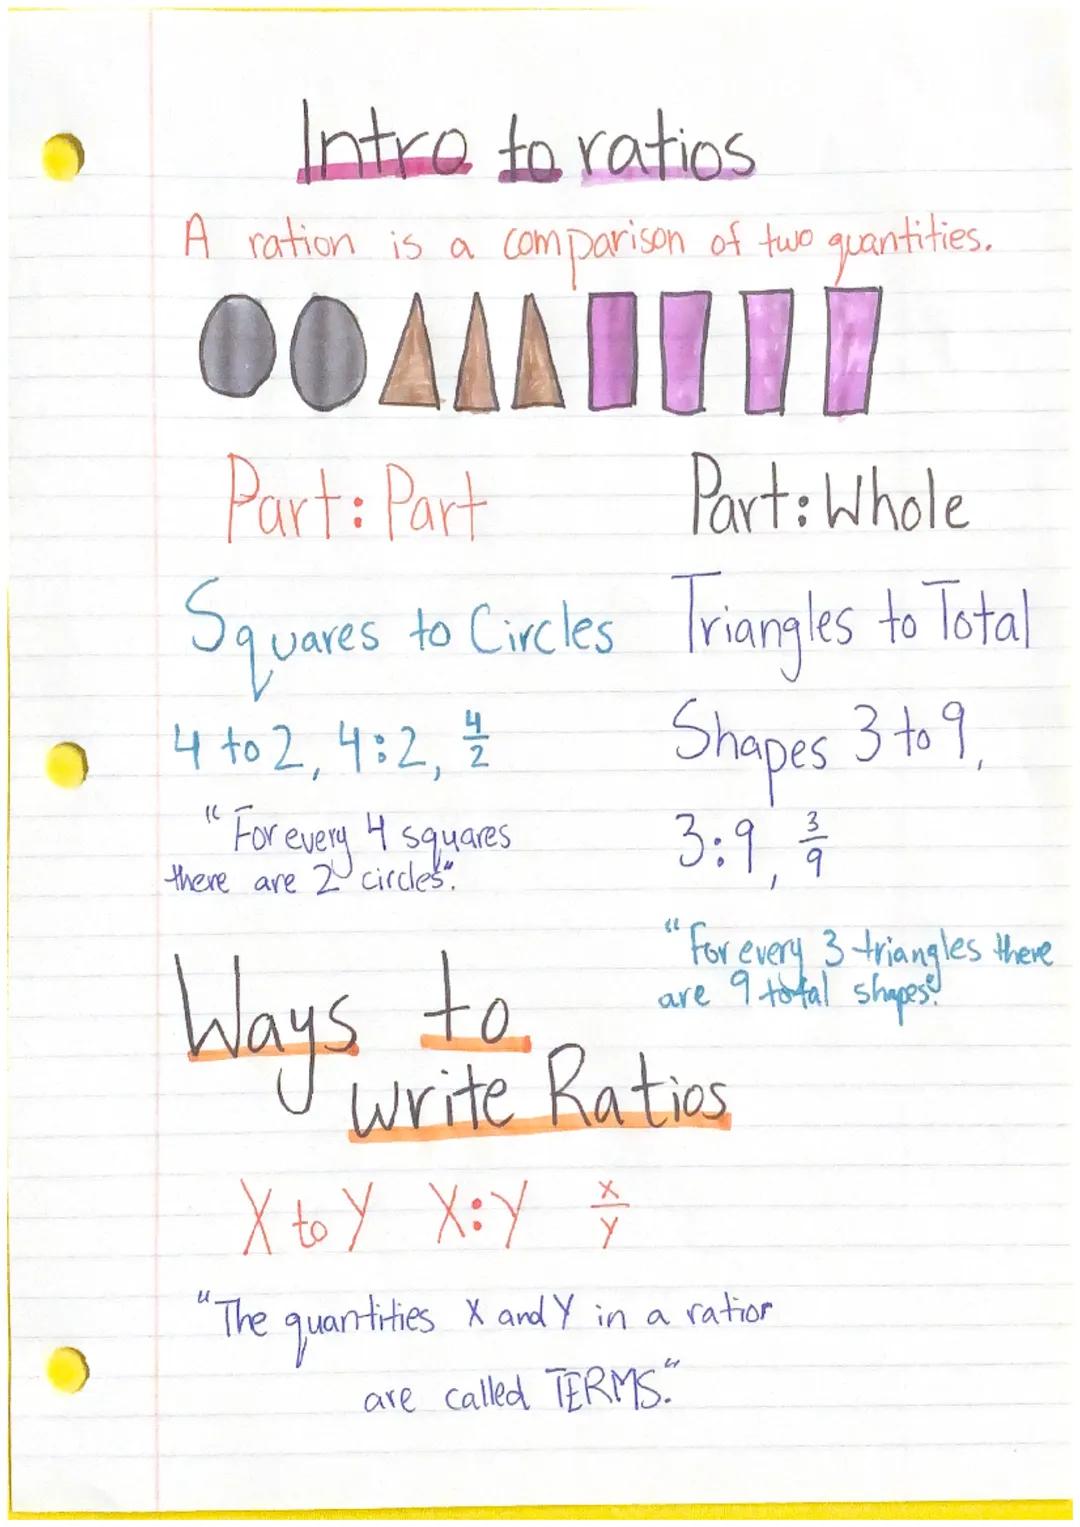 Intro to ratios
A ration is a comparison of two quantities.
Part: Part
Squares to Circles
4 to 2, 4:2, 4/2
"For every 4 squares
there are 2 circles".
Part: Whole
Triangles to Total
Shapes 3 to 9,
3:9, 3/9
"For every 3 triangles there
are 9 total shapes".
Ways to
write Ratios
X to Y X:Y X/Y
"The quantities X and Y in a ratior
are called TERMS."